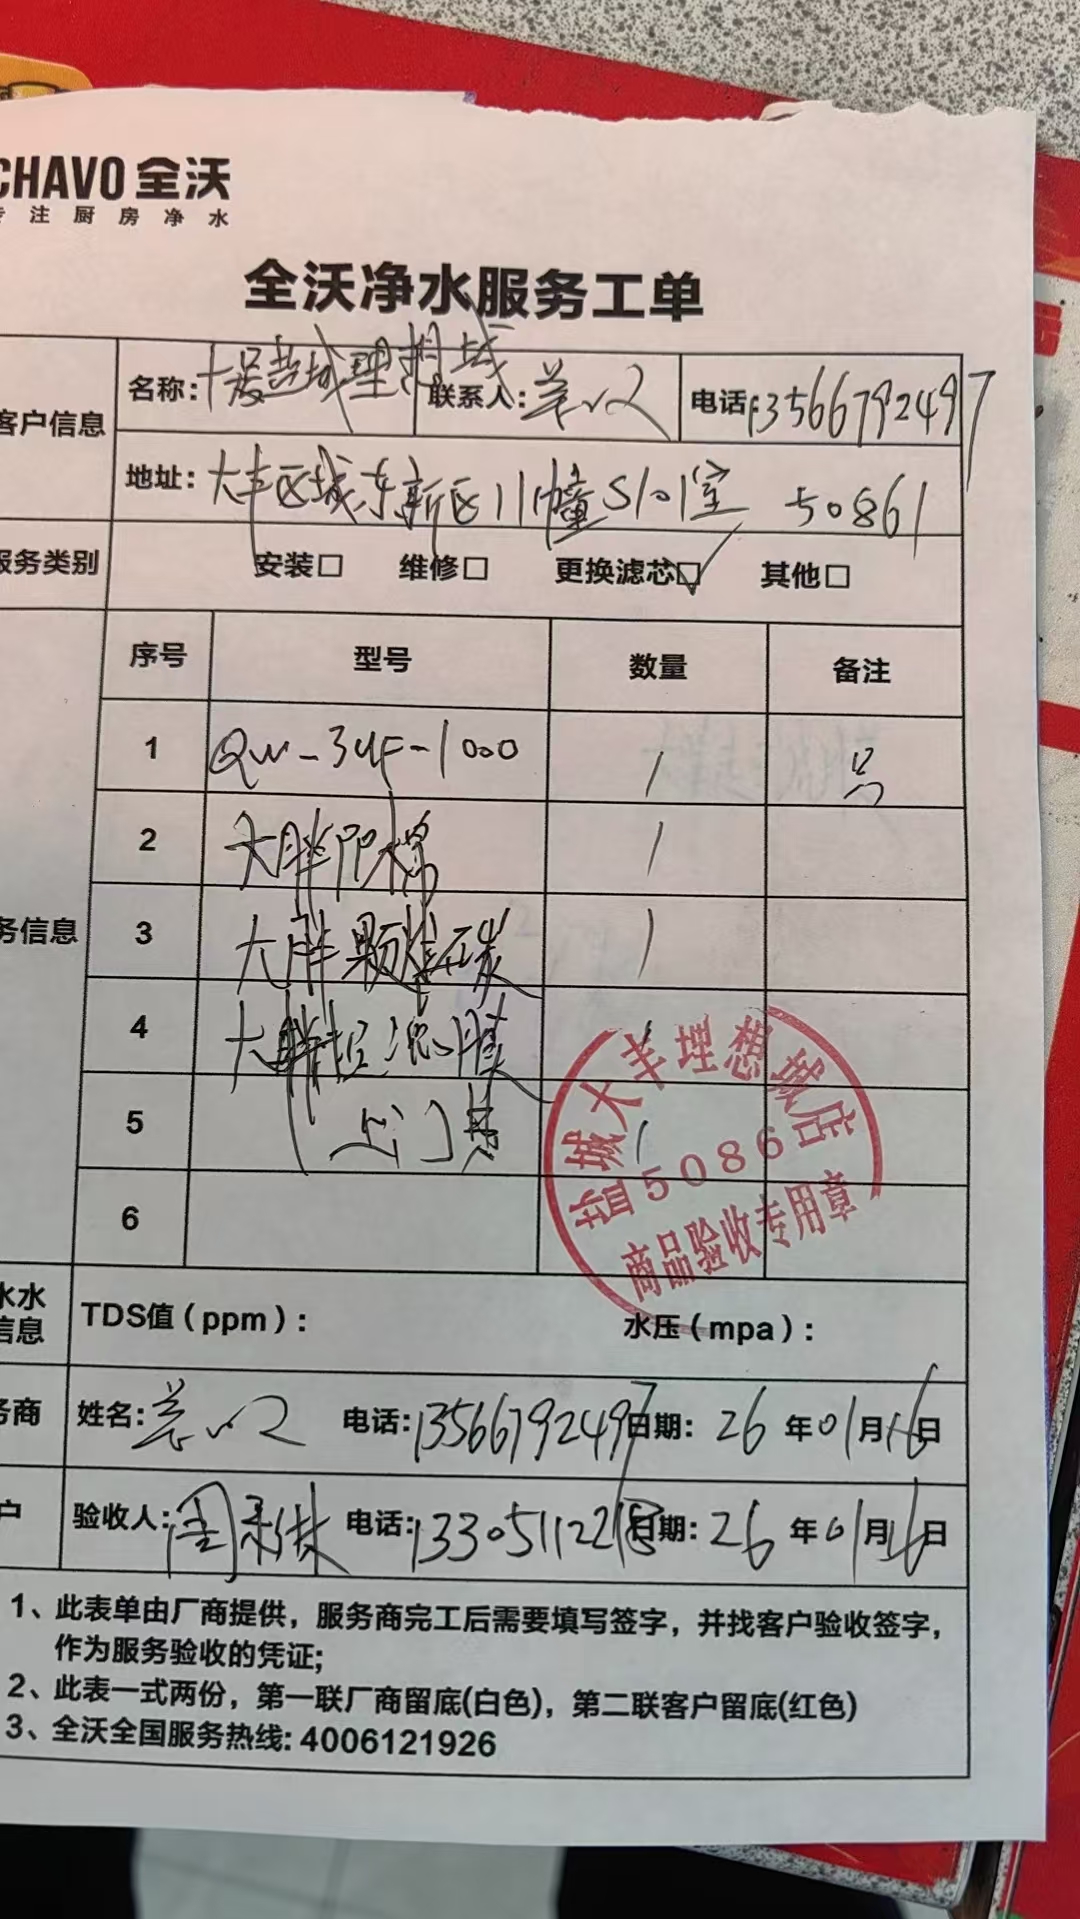 CHAVO 全沃
专注厨房净水
全沃净水服务工单
客户信息
名称: 盐城理想城 联系人: 电话: 13566792497
地址: 大丰区城东新区11幢S101室 50861
服务类别 安装□ 维修□ 更换滤芯☑ 其他□
序号 型号 数量 备注
1 QW-3UF-1000 1
2 大胖PP棉 1
3 大胖颗粒碳 1
务信息
4 大胖超滤膜
5 上门费 1
6
盐城大丰理想城店
苏5086
商品验收专用章
水水
信息
TDS值（ppm）: 水压（mpa）:
务商 姓名: 电话: 13566792497 日期: 26年01月16日
户 验收人: 周 电话: 日期: 26年01月16日
1、此表单由厂商提供，服务商完工后需要填写签字，并找客户验收签字，
作为服务验收的凭证;
2、此表一式两份，第一联厂商留底(白色)，第二联客户留底(红色)
3、全沃全国服务热线: 4006121926